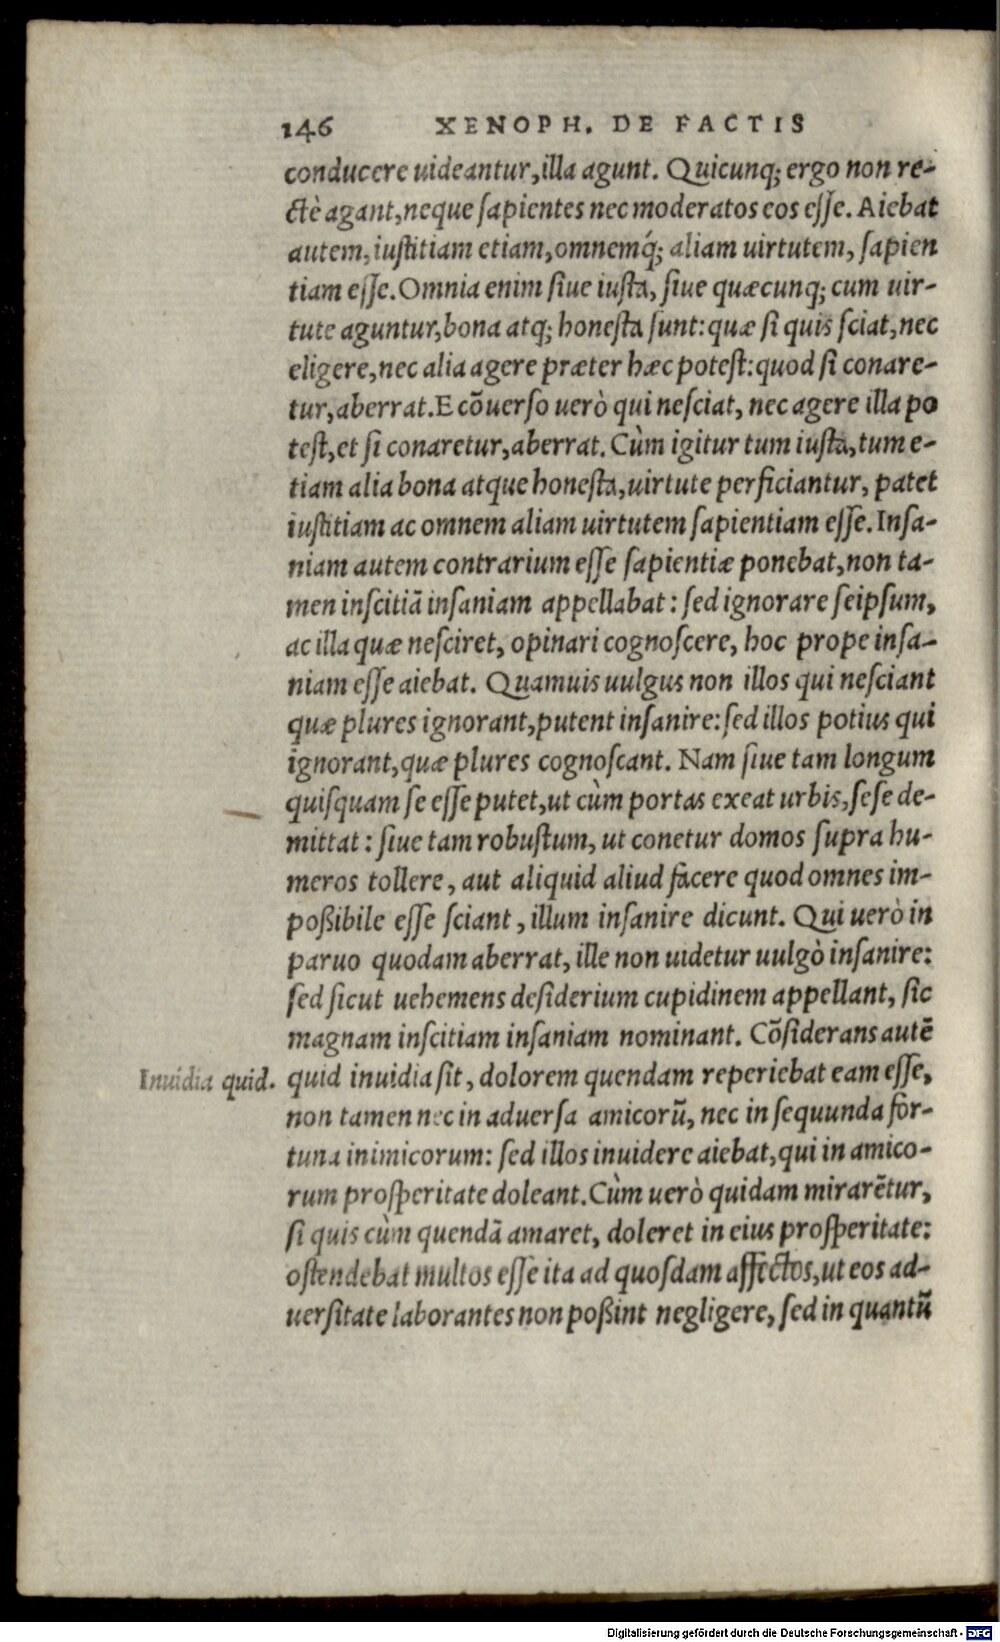 146 XENOPH. DE FACTIS
conducere uideantur, illa agunt. Quicunq; ergo non re-
ctè agant, neque ſapientes nec moderatos eos eſſe. Aiebat
autem, iuſtitiam etiam, omnemq́; aliam uirtutem, ſapien
tiam eſſe. Omnia enim ſiue iuſta, ſiue quæcunq; cum uir-
tute aguntur, bona atq; honeſta ſunt: quæ ſi quis ſciat, nec
eligere, nec alia agere præter hæc poteſt: quod ſi conare-
tur, aberrat. E cōuerſo uerò qui neſciat, nec agere illa po
teſt, et ſi conaretur, aberrat. Cùm igitur tum iuſta, tum e-
tiam alia bona atque honeſta, uirtute perficiantur, patet
iuſtitiam ac omnem aliam uirtutem ſapientiam eſſe. Inſa-
niam autem contrarium eſſe ſapientiæ ponebat, non ta-
men inſcitiā inſaniam appellabat: ſed ignorare ſeipſum,
ac illa quæ neſciret, opinari cognoſcere, hoc prope inſa-
niam eſſe aiebat. Quamuis uulgus non illos qui neſciant
quæ plures ignorant, putent inſanire: ſed illos potius qui
ignorant, quæ plures cognoſcant. Nam ſiue tam longum
quiſquam ſe eſſe putet, ut cùm portas exeat urbis, ſeſe de-
mittat: ſiue tam robuſtum, ut conetur domos ſupra hu-
meros tollere, aut aliquid aliud facere quod omnes im-
poßibile eſſe ſciant, illum inſanire dicunt. Qui uerò in
paruo quodam aberrat, ille non uidetur uulgò inſanire:
ſed ſicut uehemens deſiderium cupidinem appellant, ſic
magnam inſcitiam inſaniam nominant. Cōſiderans autē
Inuidia quid. quid inuidia ſit, dolorem quendam reperiebat eam eſſe,
non tamen nec in aduerſa amicorū, nec in ſequunda for-
tuna inimicorum: ſed illos inuidere aiebat, qui in amico-
rum proſperitate doleant. Cùm uerò quidam mirarētur,
ſi quis cùm quendā amaret, doleret in eius proſperitate:
oſtendebat multos eſſe ita ad quoſdam affectos, ut eos ad-
uerſitate laborantes non poßint negligere, ſed in quantū
Digitalisierung gefördert durch die Deutsche Forschungsgemeinschaft - DFG